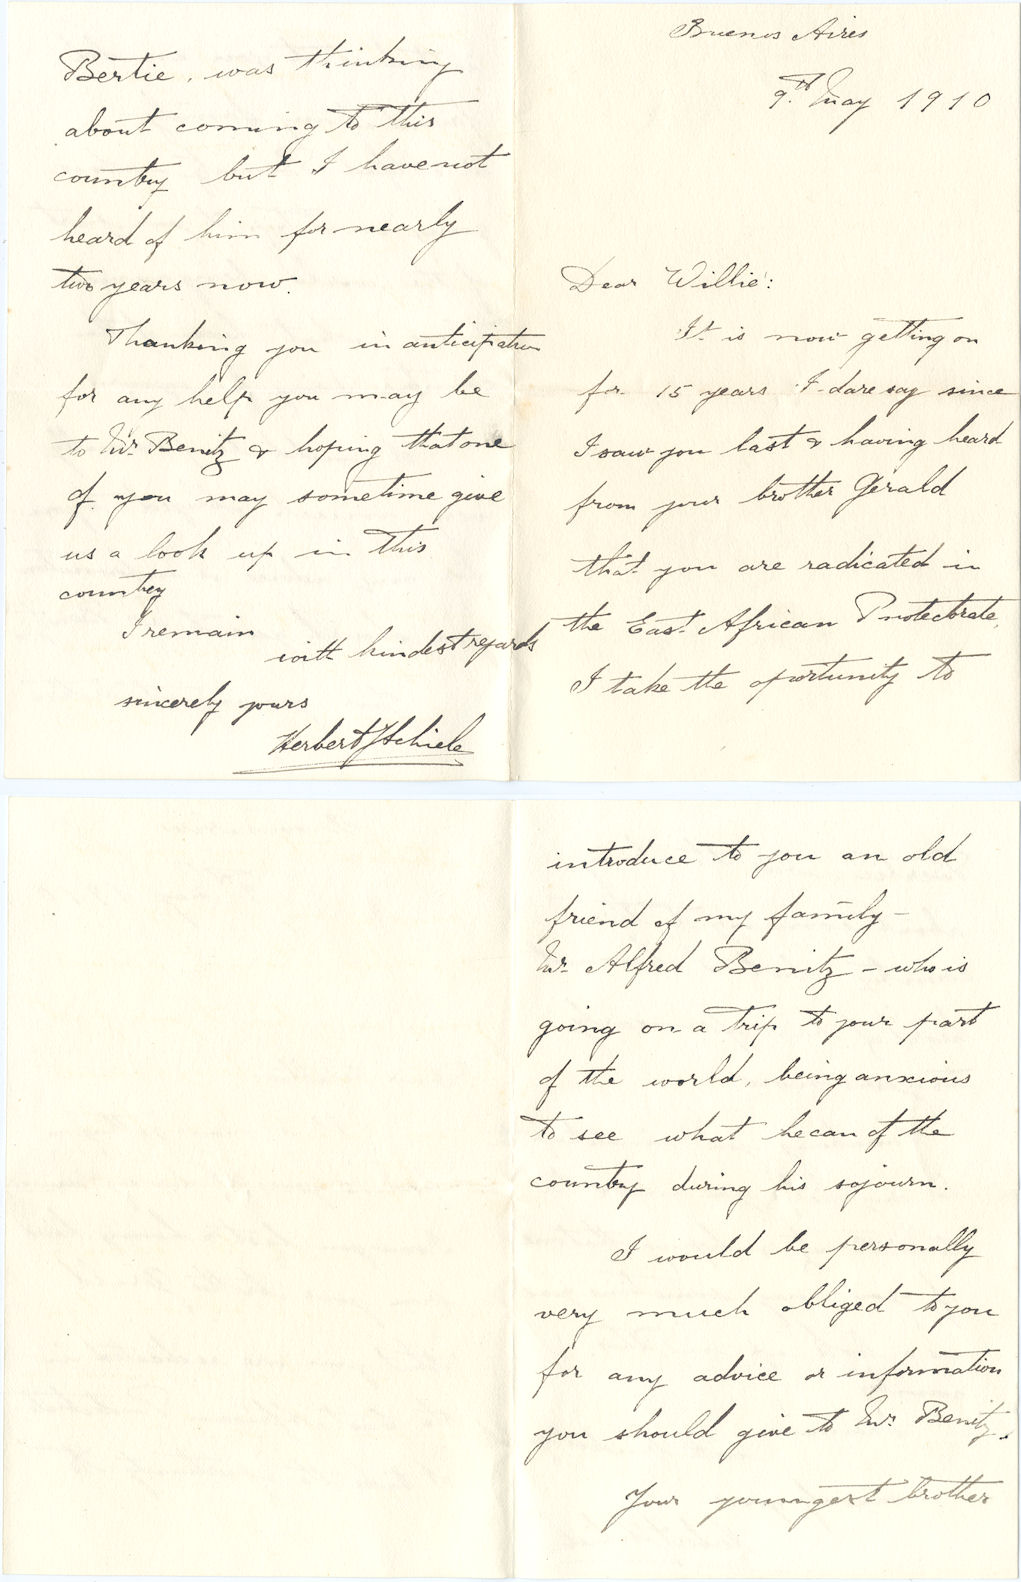 Buenos Aires
9th May 1910
Dear Willie:
It is now getting on
for 15 years I dare say since
I saw you last & having heard
from your brother Gerald
that you are radicated in
the East African Protectorate,
I take the oportunity to
introduce to you an old
friend of my family –
Mr. Alfred Benitz – who is
going on a trip to your part
of the world, being anxious
to see what he can of the
country during his sojourn.
I would be personally
very much obliged to you
for any advice or information
you should give to Mr. Benitz.
Your youngest brother
Bertie, was thinking
about coming to this
country but I have not
heard of him for nearly
two years now.
Thanking you in anticipation
for any help you may be
to Mr. Benitz & hoping that one
of you may sometime give
us a look up in this
country
I remain
with kindest regards
sincerely yours
Herbert J Schiele